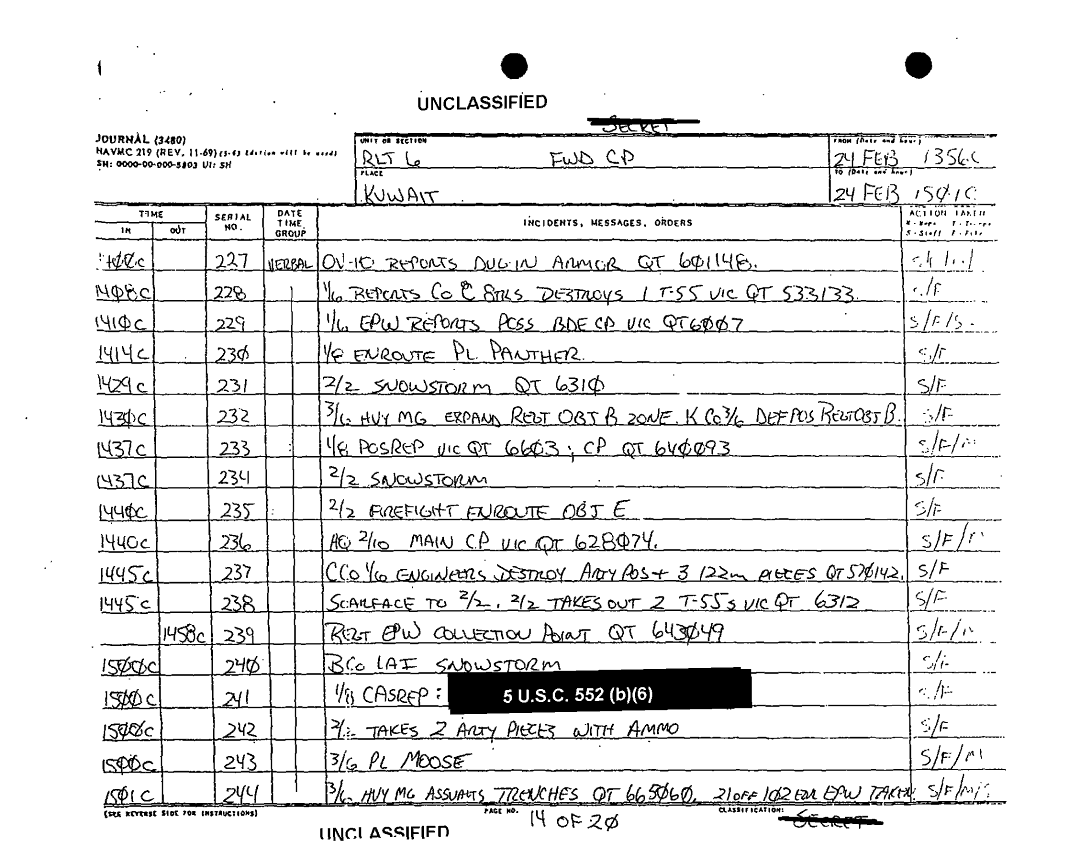 UNCLASSIFIED
SECRET
JOURNAL (3480)
NAVMC 219 (REV. 11-69) (3-63 Edition will be used)
SN: 0000-00-000-5803 UI: SH
UNIT OR SECTION
RLT 6 FWD CP
FROM (Date and hour)
24 FEB 1356C
PLACE
KUWAIT
TO (Date and hour)
24 FEB 15Ø1C
TIME
IN OUT
SERIAL NO.
DATE TIME GROUP
INCIDENTS, MESSAGES, ORDERS
ACTION TAKEN
M-Maps T-Troops
S-Staff F-File
14ØØC 227 VERBAL OV-1Ø REPORTS DUG-IN ARMOR QT 601148.
14Ø8C 228 1/6 REPORTS Co C 8TKS DESTROYS 1 T-55 VIC QT 533133. S/F
141ØC 229 1/6 EPW REPORTS POSS BDE CP VIC QT6ØØ7 S/F/S
1414C 23Ø 1/8 ENROUTE PL PANTHER. S/F
1429C 231 2/2 SNOWSTORM QT 631Ø S/F
143ØC 232 3/6 HVY MG EXPAND REGT OBJ B ZONE. K Co 3/6 DEF POS REGT OBJ B. S/F
1437C 233 1/8 POSREP VIC QT 66Ø3; CP QT 64ØØ93 S/F/M
1437C 234 2/2 SNOWSTORM S/F
144ØC 235 2/2 FIREFIGHT ENROUTE OBJ E S/F
1440C 236 HQ 2/10 MAIN CP VIC QT 628Ø74. S/F/M
1445C 237 CCo 1/6 ENGINEERS DESTROY ARTY POS + 3 122m PIECES QT 57Ø142. S/F
1445C 238 SCARFACE TO 2/2. 2/2 TAKES OUT 2 T-55s VIC QT 6312 S/F
1458C 239 REGT EPW COLLECTION POINT QT 643Ø49 S/F/M
15ØØC 24Ø BCo LAI SNOWSTORM S/F
15ØØC 241 1/8 CASREP: 5 U.S.C. 552 (b)(6) S/F
15ØØC 242 TAKES 2 ARTY PIECES WITH AMMO S/F
15ØØC 243 3/6 PL MOOSE S/F/M
15Ø1C 244 3/6 HVY MG ASSUALTS TRENCHES QT 665Ø60. 21 OFF 102 EM EPW TAKEN S/F/M/S
(SEE REVERSE SIDE FOR INSTRUCTIONS)
PAGE NO. 14 OF 2Ø
CLASSIFICATION: SECRET
UNCLASSIFIED